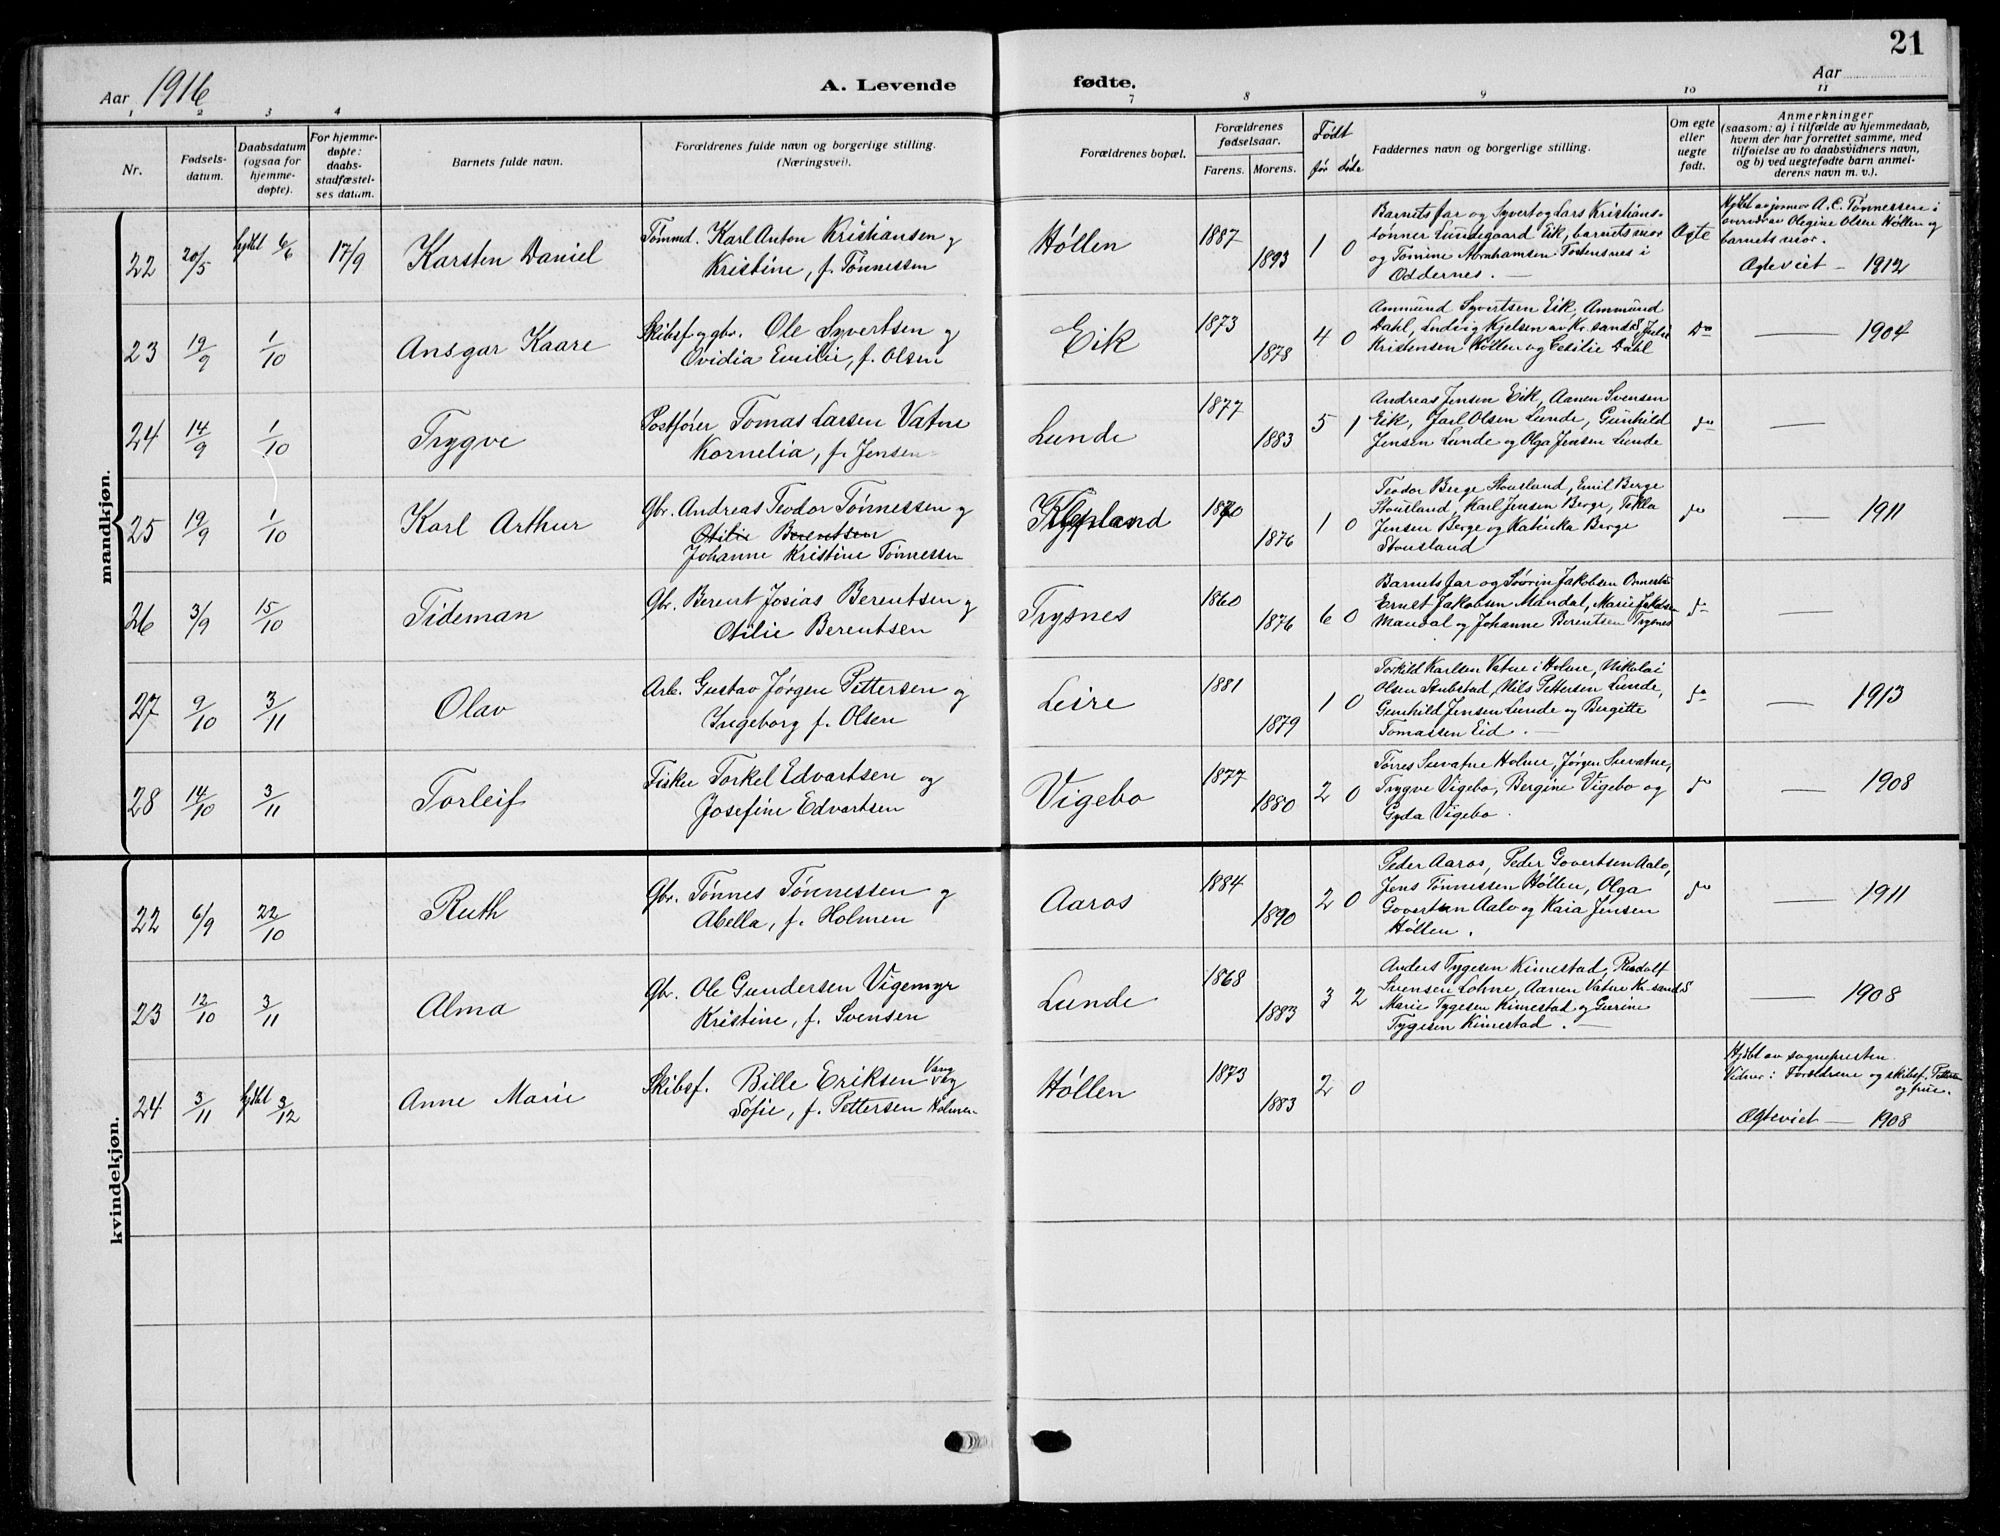 21
Aar 1916
A. Levende fødte.
Aar
1 2 3 4 7 8 9 10 11
Nr.
Fødsels-
datum.
Daabsdatum
(ogsaa for
hjemme-
døpte).
For hjemme-
døpte:
daabs-
stadfæstel-
ses datum.
Barnets fulde navn.
Forældrenes fulde navn og borgerlige stilling.
(Næringsvei).
Forældrenes bopæl.
Forældrenes
fødselsaar.
Farens. Morens.
Født
før døde
Faddernes navn og borgerlige stilling.
Om egte
eller
uegte
født.
Anmerkninger
(saasom: a) i tilfælde av hjemmedaab,
hvem der har forrettet samme, med
tilføielse av to daabsvidners navn,
og b) ved uegtefødte barn anmel-
derens navn m. v.).
mandkjøn.
22 20/5 hjdbt 6/6 17/9 Karsten Daniel
Tømmd. Karl Anton Kristiansen og
Kristine, f. Tønnessen
Høllen 1887 1893 1 0
Barnets far og Syvert og Lars Kristians-
sønner Lundegaard Eik, barnets mor
og Tomine Abrahamsen Fostensnes i
Oddernes. —
Ægte
Hjdbt av jormor A. C. Tønnessen i
overvær av Olegine Olsen Høllen og
barnets mor.
Ægteviet — 1912
23 19/9 1/10 Ansgar Kaare
Skibsf. og gbr. Ole Syvertsen og
Ovidia Emilie, f. Olsen
Eik 1873 1878 4 0
Ammund Syvertsen Eik, Ammund
Dahl, Ludvig Kjelsen av Kr.sand S, Julie
Kristensen Høllen og Cecilie Dahl
Do — 1904
24 14/9 1/10 Trygve
Postfører Tomas Larsen Vatne
Kornelia, f. Jensen
Lunde 1877 1883 5 1
Andreas Jensen Eik, Aanen Svensen
Eik, Jarl Olsen Lunde, Gunhild
Jensen Lunde og Olga Jensen Lunde
do —
25 19/9 1/10 Karl Arthur
Gbr. Andreas Teodor Tønnessen og
Otilie Berentsen
Johanne Kristine Tønnessen
Klepland 1870 1876 1 0
Teodor Berge Stousland, Emil Berge
Stousland, Karl Jensen Berge, Tekla
Jensen Berge og Katinka Berge
Stousland
do — 1911
26 3/9 15/10 Tideman
Gbr. Berent Josias Berentsen og
Otilie Berentsen
Trysnes 1860 1876 6 0
Barnets far og Sövrin Jakobsen
Ernst Jakobsen Mandal, Marie Jakobsen
Mandal og Johanne Berentsen Trysnes
do —
27 9/10 3/11 Olav
Arb. Gustav Jørgen Pettersen og
Ingeborg f. Olsen
Leire 1881 1879 1 0
Torkild Karlsen Vatne i Holme, Nikolai
Olsen Stubstad, Nils Pettersen Lunde,
Gunhild Jensen Lunde og Bergitte
Tomassen Eid. —
do — 1913
28 14/10 3/11 Torleif
Fisker Torkel Edvartsen og
Josefine Edvartsen
Vigebo 1877 1880 2 0
Tørres Survatne Holme, Jørgen Survatne,
Trygve Vigebo, Bergine Vigebo og
Gyda Vigebo.
do — 1908
kvindekjøn.
22 6/9 22/10 Ruth
Gbr. Tønnes Tønnessen og
Abella, f. Holmen
Aaros 1884 1890 2 0
Peder Aaros, Peder Govertsen Aalo,
Jens Tønnessen Høllen, Olga
Govertsen Aalo og Kaia Jensen
Høllen.
do — 1911
23 12/10 3/11 Alma
Gbr. Ole Gundersen Vigemyr
Kristine, f. Svensen
Lunde 1868 1883 3 2
Anders Tygesen Kimestad, Rudolf
Sørensen Lohne, Aanen Vatne Kr.sand S
Marie Tygesen Kimestad og Gurine
Tygesen Kimestad. —
— 1908
24 3/11 hjdbt 3/12 Anne Marie
Skibsf. Bille Eriksen Vang og
Sofie, f. Pettersen Holmen
Høllen 1873 1883 2 0
Hjdbt av sognepresten.
Vidner: Forældrene og skibsf. Pettersen
og frue.
Ægteviet — 1908